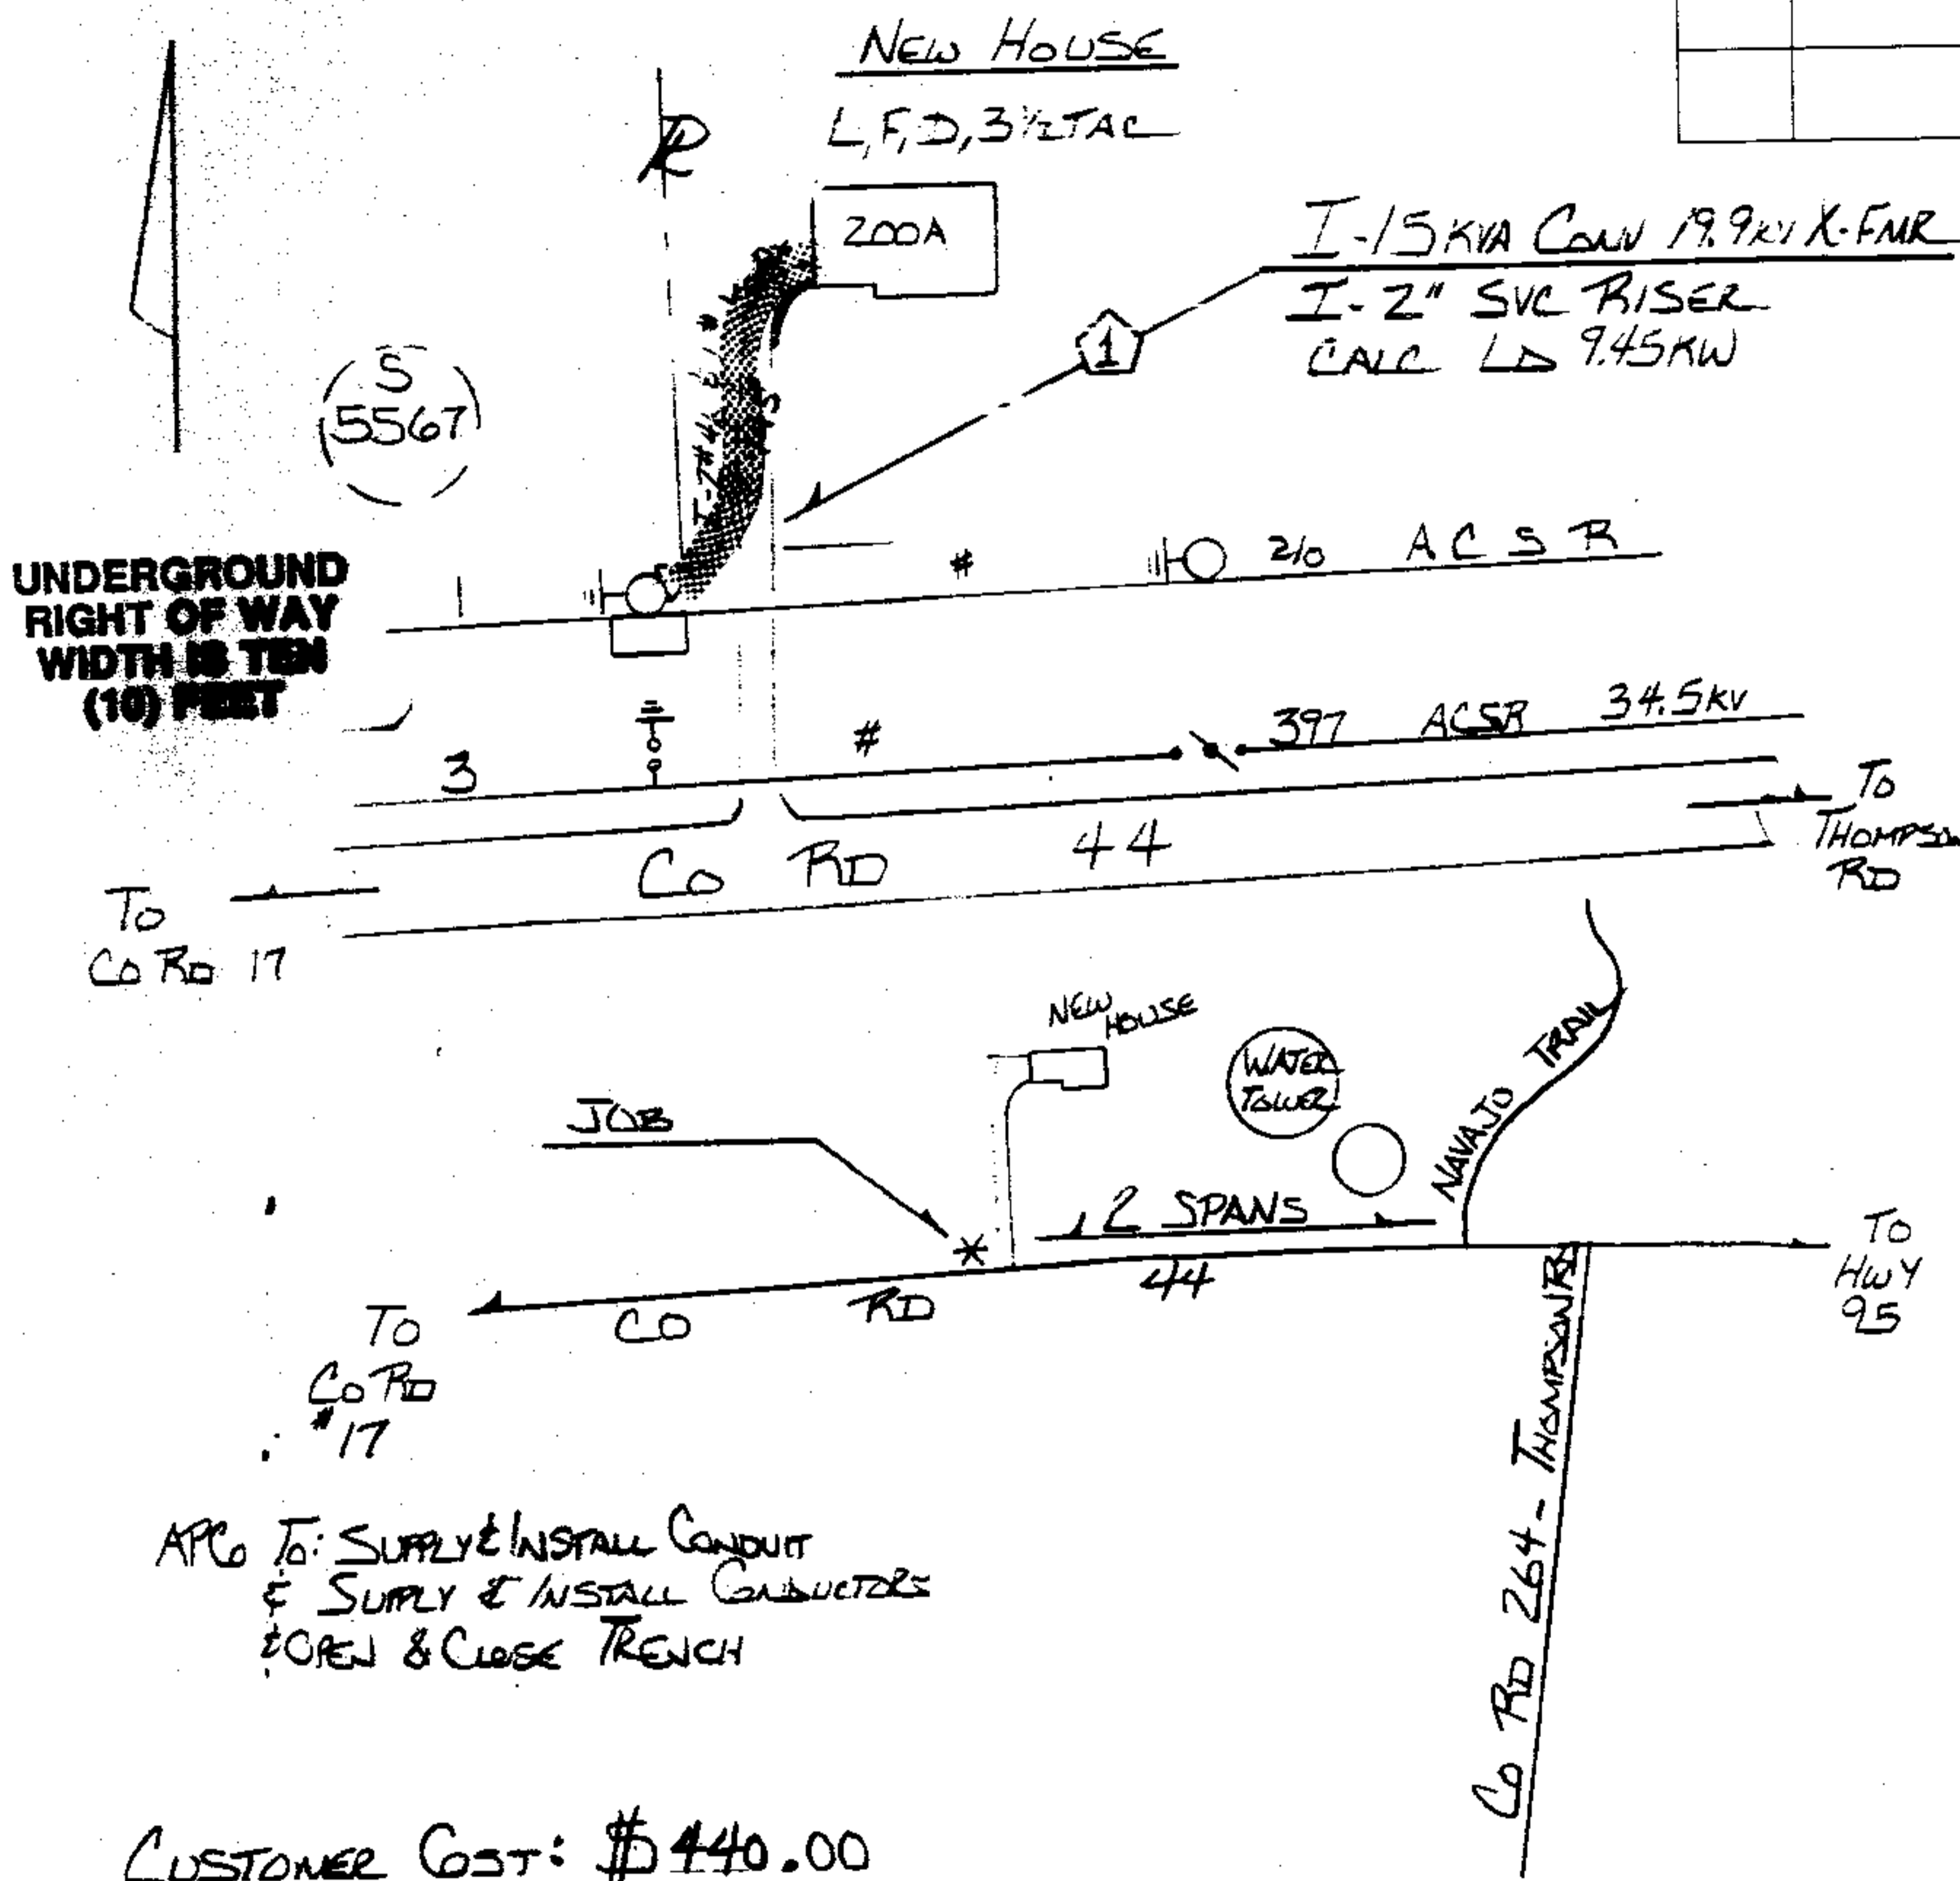 NEW HOUSE
L, F, D, 3½TAC
200A
I-15 KVA CONV 19.9KV X-FMR
I-2" SVC RISER
CALC LD 9.45KW
1
S
5567
UNDERGROUND
RIGHT OF WAY
WIDTH IS TEN
(10) FEET
1 # 2/0 ACSR
3 # 397 ACSR 34.5KV
TO
THOMPSON
RD
CO RD 44
TO
CO RD 17
NEW
HOUSE
WATER
TOWER
NAVAJO TRAIL
JOB
2 SPANS
TO
HWY
95
CO RD 44
TO
CO RD
#17
CO RD 264 - THOMPSON RD
APCO TO: SUPPLY & INSTALL CONDUIT
& SUPPLY & INSTALL CONDUCTORS
& OPEN & CLOSE TRENCH
CUSTOMER COST: $440.00